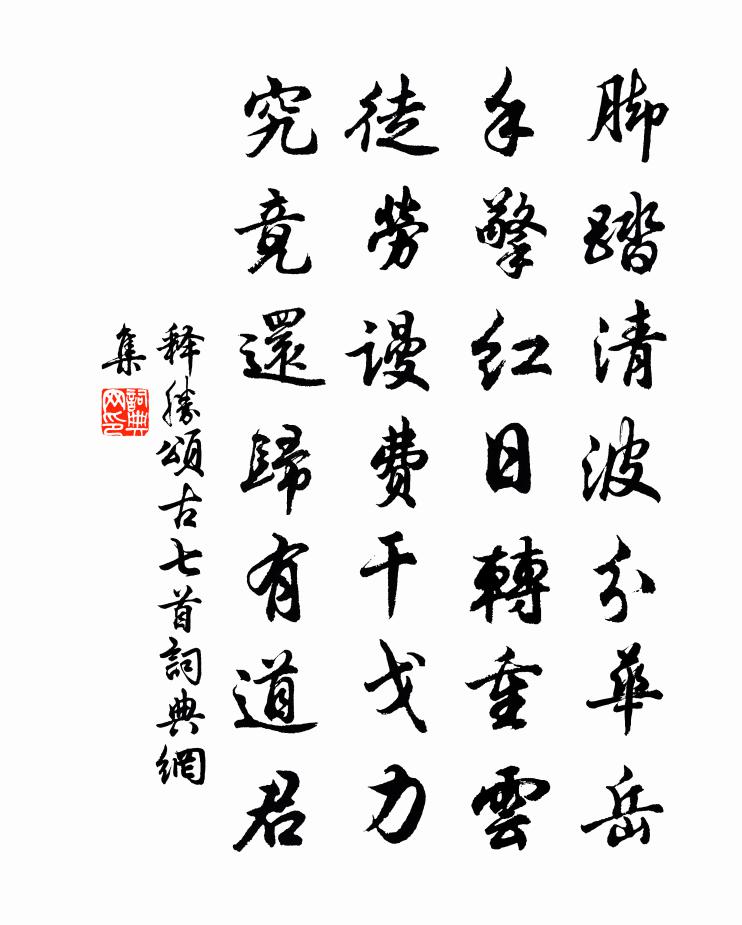 脚踏清波分華岳
手擎红日轉重雲
徒勞謾費干戈力
究竟還歸有道君
释勝頌古七首詞典網
集
詞典
网印